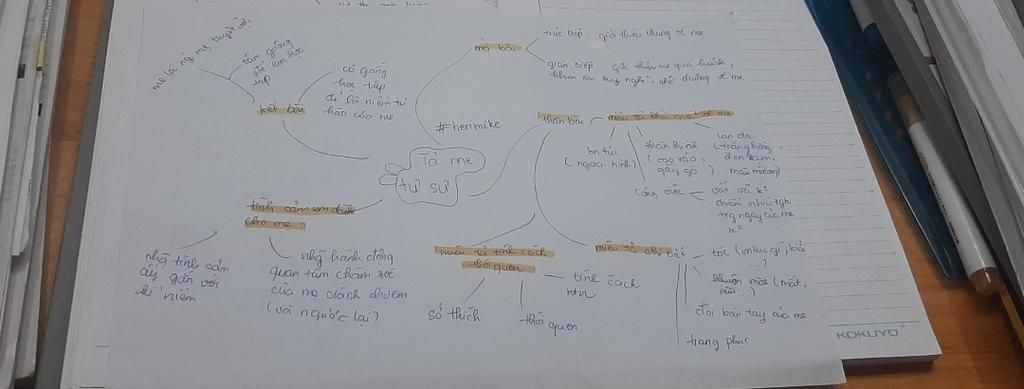 mở bài
trực tiếp: giới thiệu chung về mẹ
gián tiếp: giới thiệu mẹ qua h.cảnh,
khiến em suy nghĩ, nhớ thương về mẹ
mẹ là ng mẹ tuyệt vời
tấm gương
để em học
tập
cố gắng
học tập
để là niềm tự
hào của mẹ
kết bài
#herimike
Tả mẹ
tự sự
thân bài
miêu tả khái quát về mẹ
bn tuổi
(ngoại hình)
thân hình
(cao ráo,
gầy go..)
làn da
(trắng hồng,
đen sạm,
màu mòng)
công việc
vất vả k=
chiếm nhiều tg
trg ngày của mẹ
k=
tình cảm em dành
cho mẹ:
nhữ tình cảm
ấy gắn với
kỉ niệm
nhữ hành động
quan tâm chăm sóc
của mẹ dành cho em
(và ngược lại)
miêu tả tính cách
- thói quen
sở thích
thói quen
tính cách
ntn
miêu tả chi tiết
tóc (màu gì, kiểu
...)
khuôn mặt (mắt,
mũi..)
đôi bàn tay của mẹ
trang phục
KOKUYO